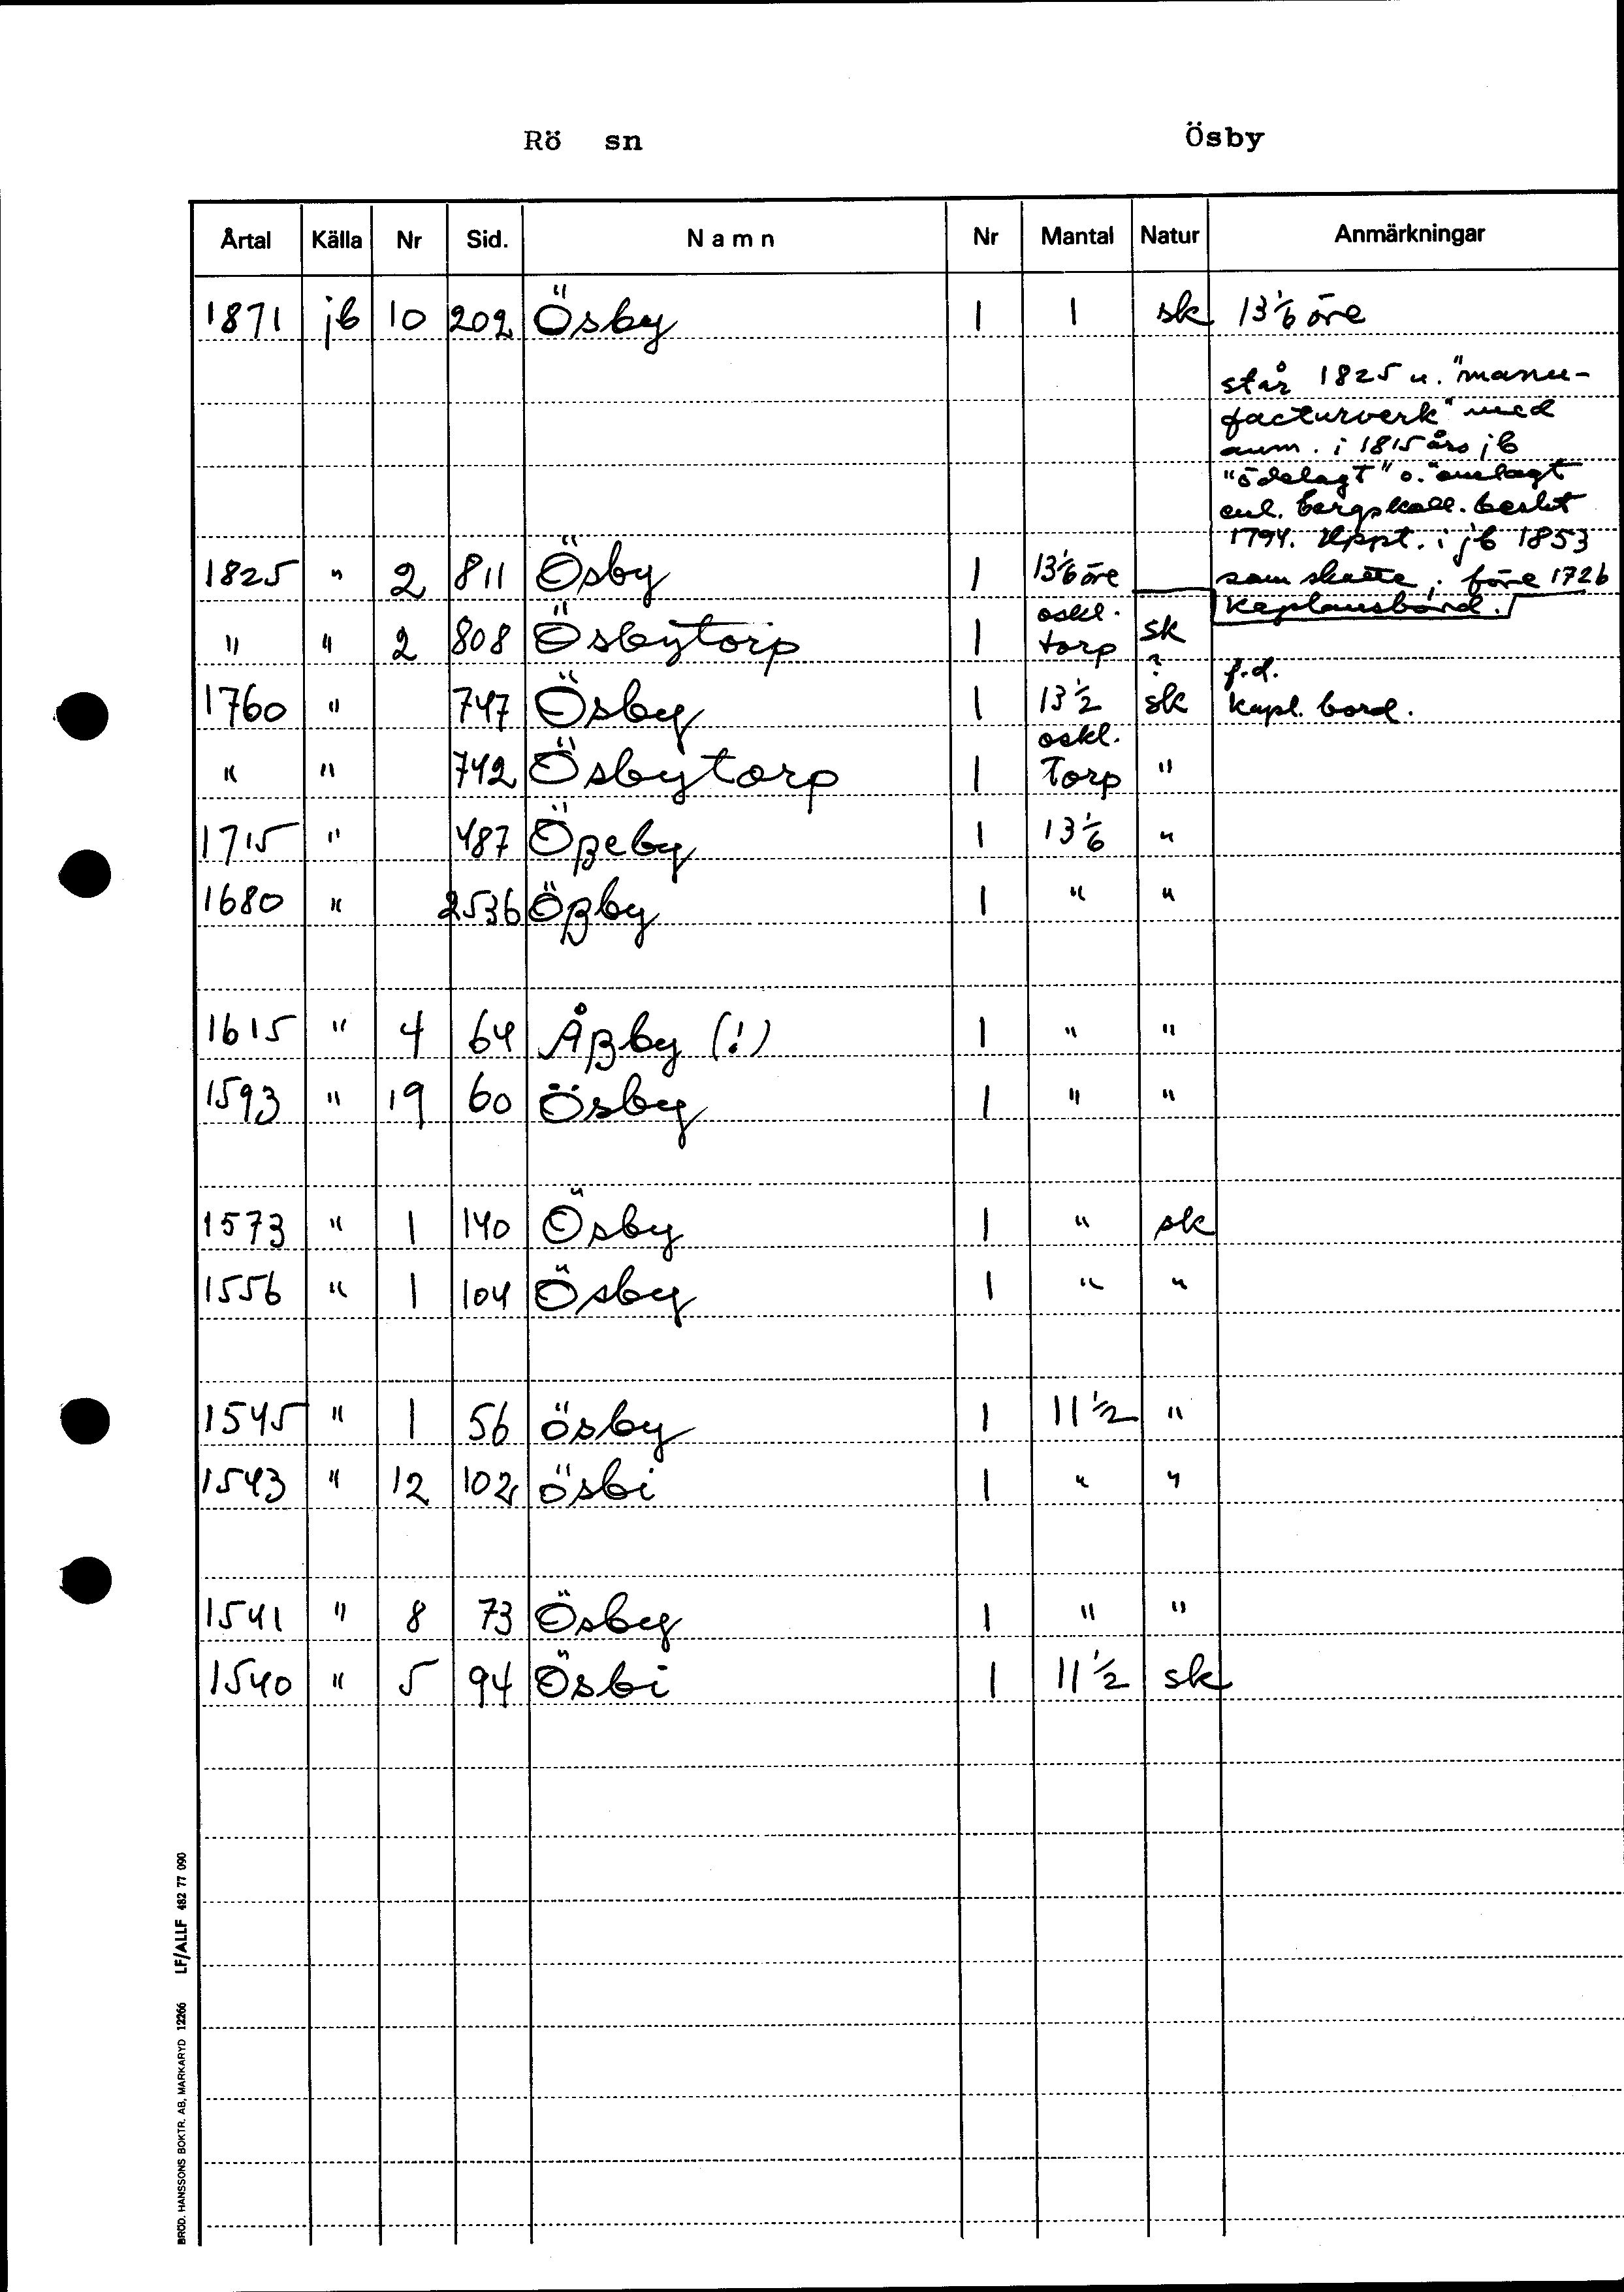 Rö sn Ösby
Årtal Källa Nr Sid. Namn Nr Mantal Natur Anmärkningar
1871 jb 10 202 Ösby 1 1 sk 13 1/6 öre
står 1825 u. "manu-
facturverk" med
anm. i 1815 års jb
"ödelagt" o. "omlagt
enl. bergskoll. beslut
1794. Uppt. i jb 1853
som skatte. före 1726
Kaplansbord.
1825 " 2 811 Ösby 1 13 1/6 öre
" " 2 808 Ösbytorp 1 oskl. torp sk ?
1760 " 747 Ösby 1 13 1/2 sk f.d. kapl. bord.
" " 742 Ösbytorp 1 oskl. Torp "
1715 " 487 Ößeby 1 13 1/6 "
1680 " 2536 Ößby 1 " "
1615 " 4 64 Åßby (!) 1 " "
1593 " 19 60 Ösby 1 " "
1573 " 1 140 Ösby 1 " sk
1556 " 1 104 Ösby 1 " "
1545 " 1 56 ösby 1 11 1/2 "
1543 " 12 102 ösbi 1 " "
1541 " 8 73 Ösby 1 " "
1540 " 5 94 Ösbi 1 11 1/2 sk
BRÖD. HANSSONS BOKTR. AB, MARKARYD 12266 LF/ALLF 482 77 090